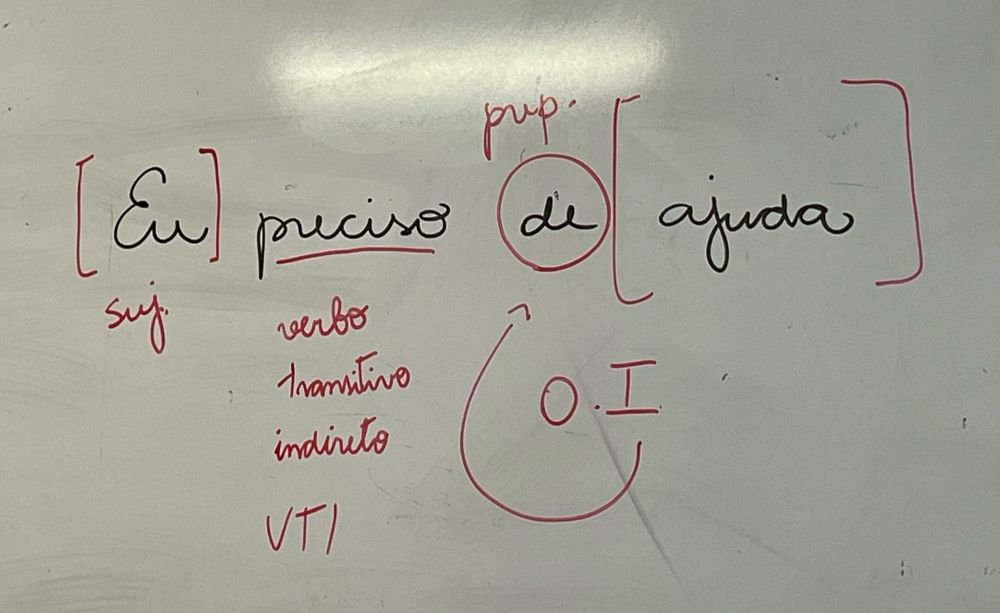 prep.
[Eu] preciso de [ajuda]
suj.
verbo
transitivo
indireto
O.I.
VTI